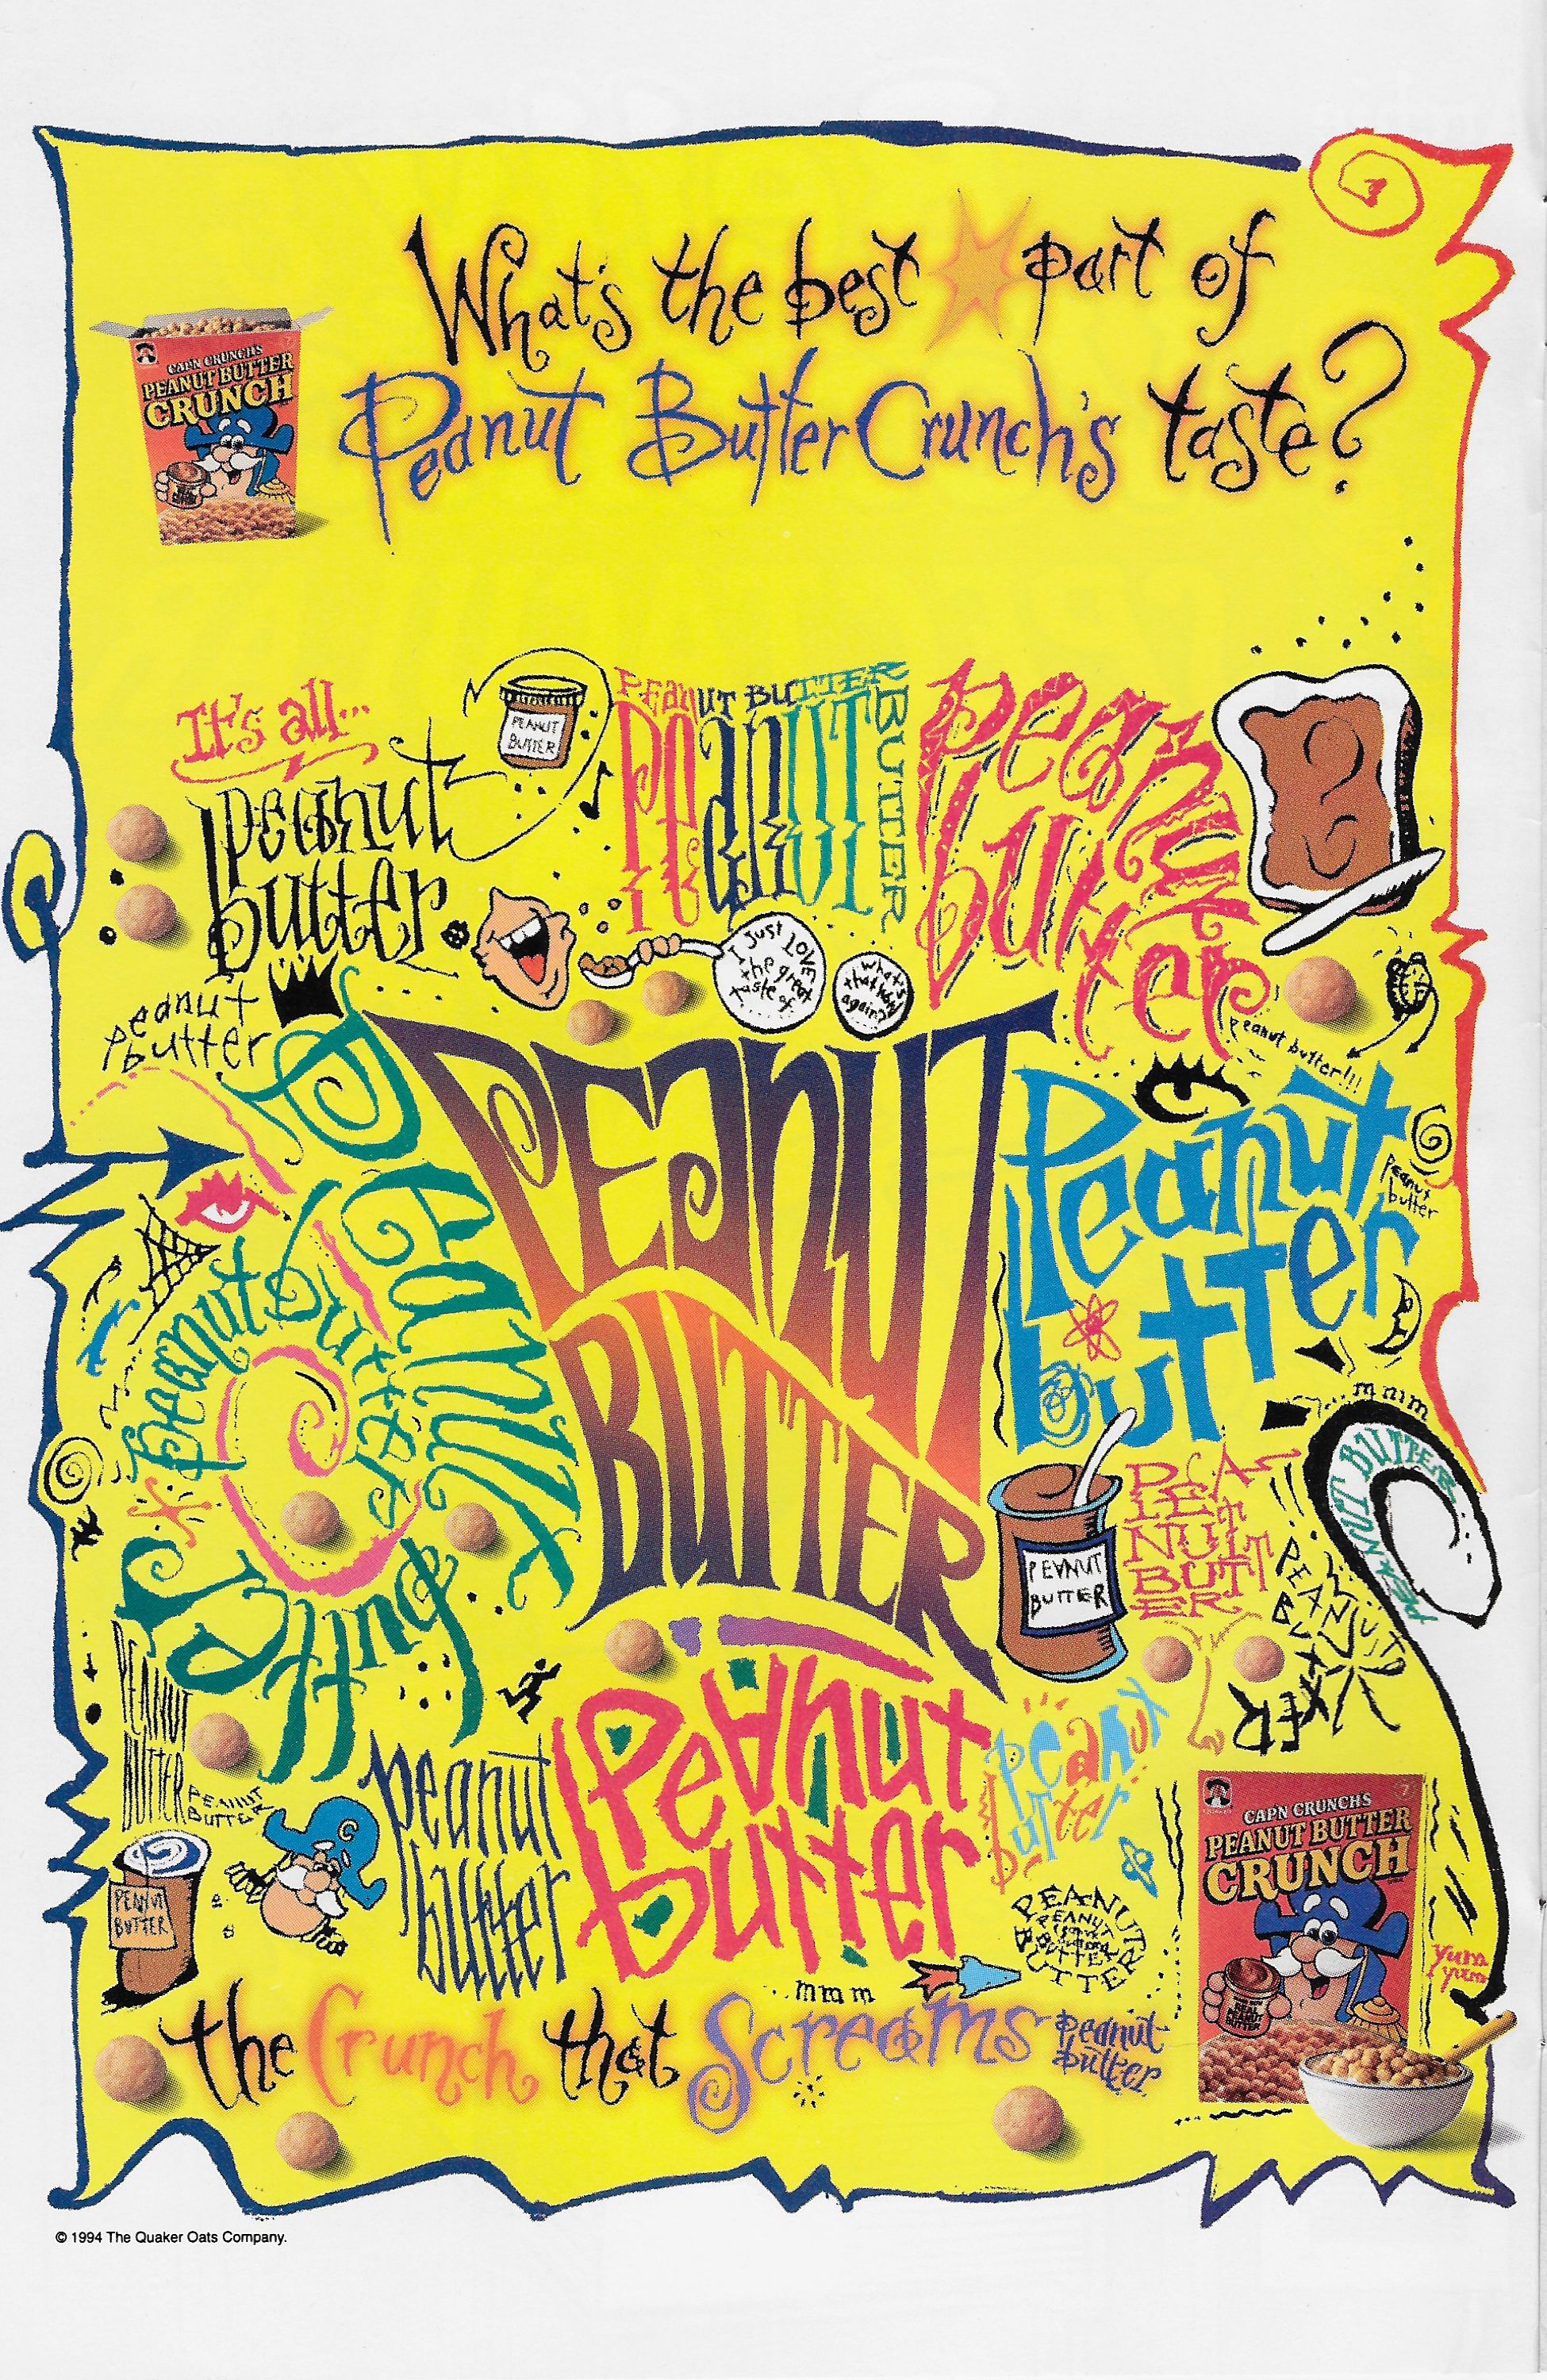 What's the best part of
Peanut Butter Crunch's taste?
CAP'N CRUNCH'S
PEANUT BUTTER
CRUNCH
It's all...
peanut
butter
PEANUT
BUTTER
PEANUT BUTTER
PEANUT
BUTTER
peanut
butter
I just LOVE
the great
taste of
what's
that
again?
peanut
butter
Peanut
Butter
PEANUT
BUTTER
peanut butter!!!
Peanut
butter
peanut
butter
Peanut
Butter
mmm
PEANUT BUTTER
PEVNUT
BUTTER
PEA
NUT
BUTT
ER
PEANUT
BUTTER
PEANUT
BUTTER
PEANUT
BUTTER
peanut
butter
Peanut
butter
peanut
butter
PEANUT
BUTTER
PEANUT
BUTTER
PEANUT
BUTTER
CAP'N CRUNCH'S
PEANUT BUTTER
CRUNCH
REAL
PEANUT
BUTTER
yum
yum
...mmm
the Crunch that Screams peanut
butter
© 1994 The Quaker Oats Company.